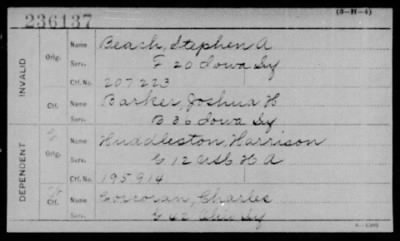 236137
(3-H-4)
INVALID
Orig.
Name Beach, Stephen A
Serv. F 20 Iowa Inf
Ctf. No. 207223
Ctf.
Name Barker, Joshua H
Serv. B 36 Iowa Inf
DEPENDENT
Orig.
Name Huddleston, Harrison
Serv. G 12 USC H A
Ctf. No. 195914
Ctf.
Name Corcoran, Charles
Serv. G 42 Inf